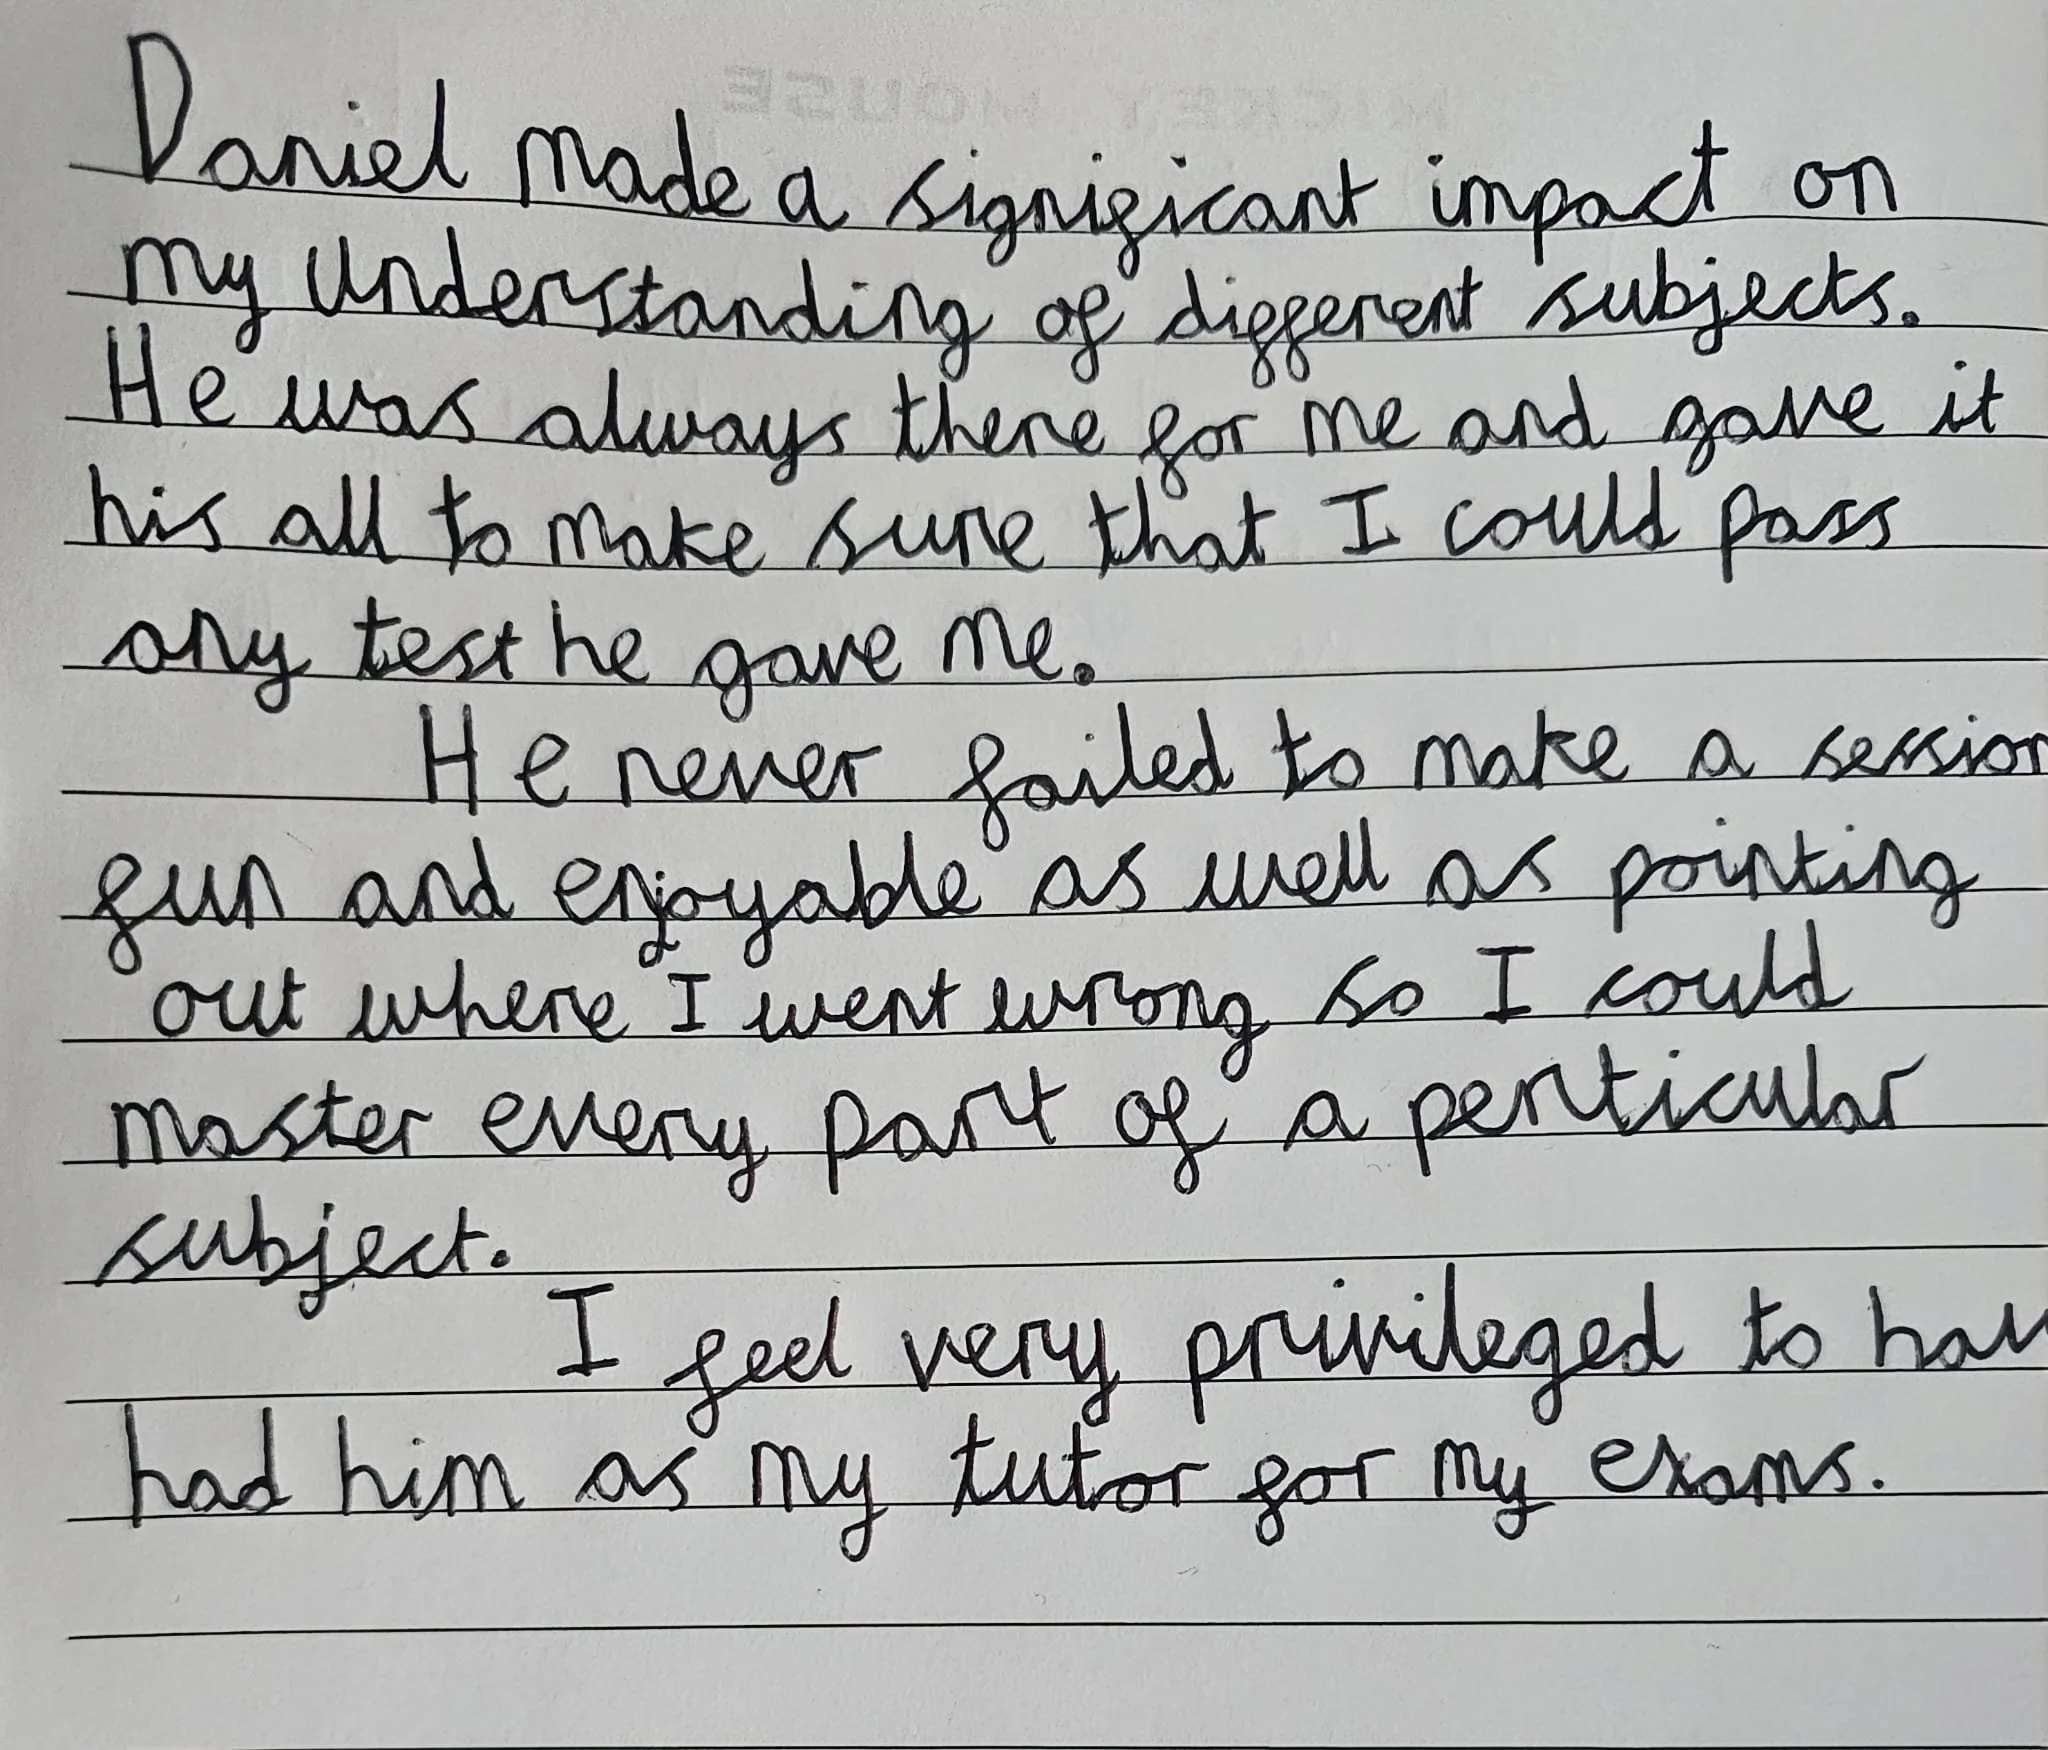 MICKEY MOUSE
Daniel made a significant impact on
my understanding of different subjects.
He was always there for me and gave it
his all to make sure that I could pass
any test he gave me.
He never failed to make a session
fun and enjoyable as well as pointing
out where I went wrong so I could
master every part of a perticular
subject.
I feel very privileged to hav
had him as my tutor for my exams.